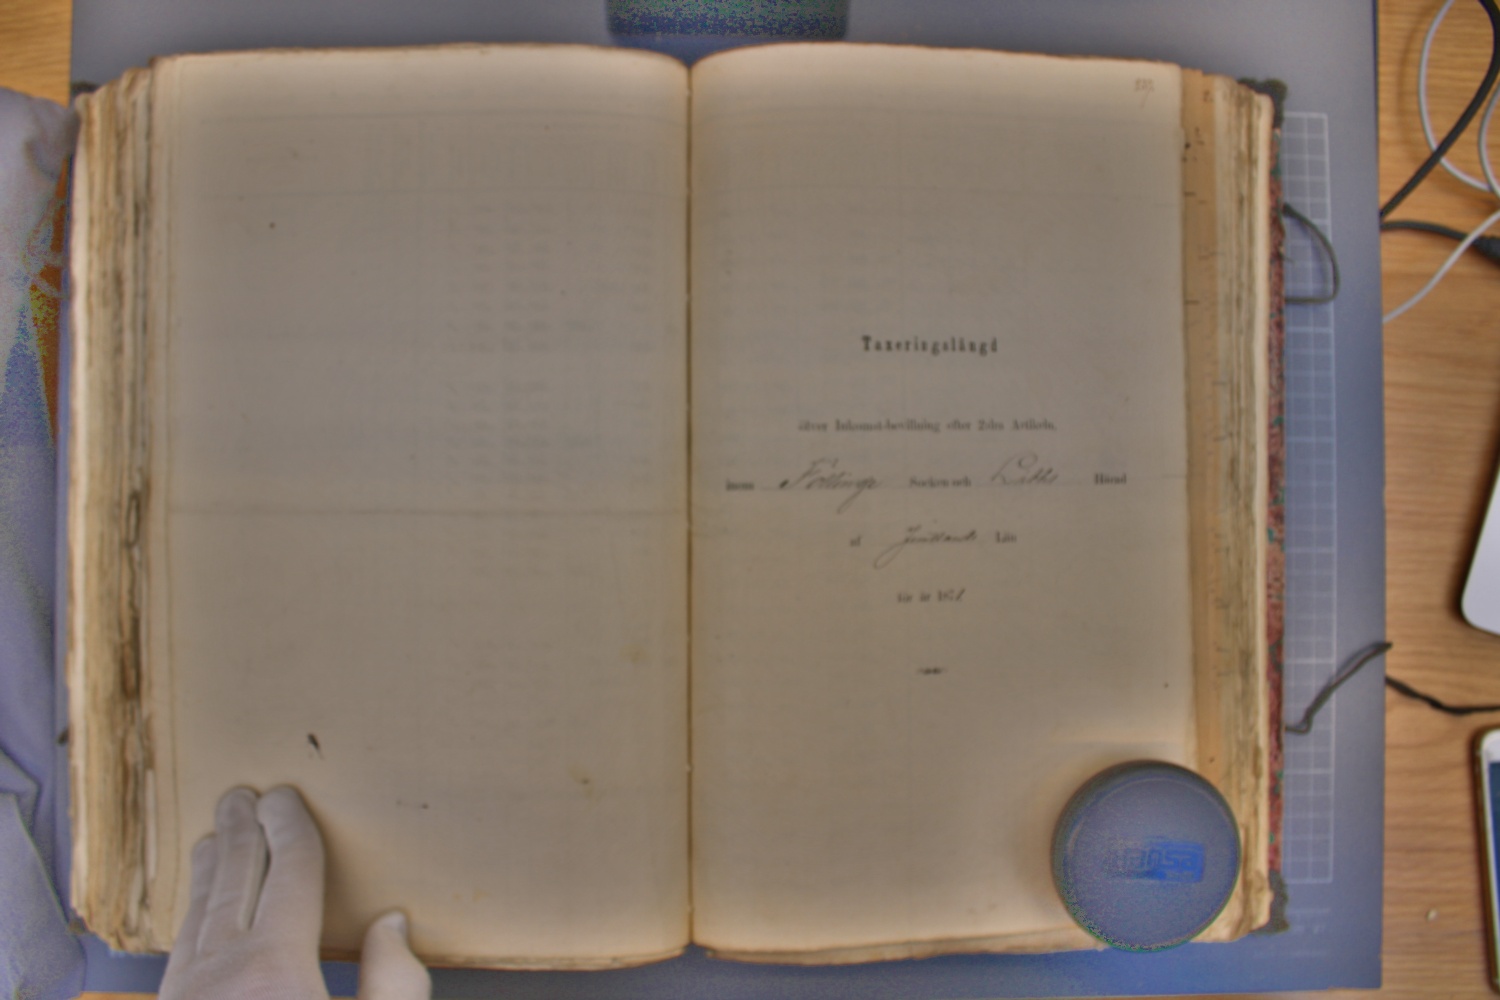 Taxeringslängd
öfver Inkomst-bevillning efter 2:dra Artikeln.
inom Föllinge Socken och Liths Härad
af Jemtlands Län
för år 1871